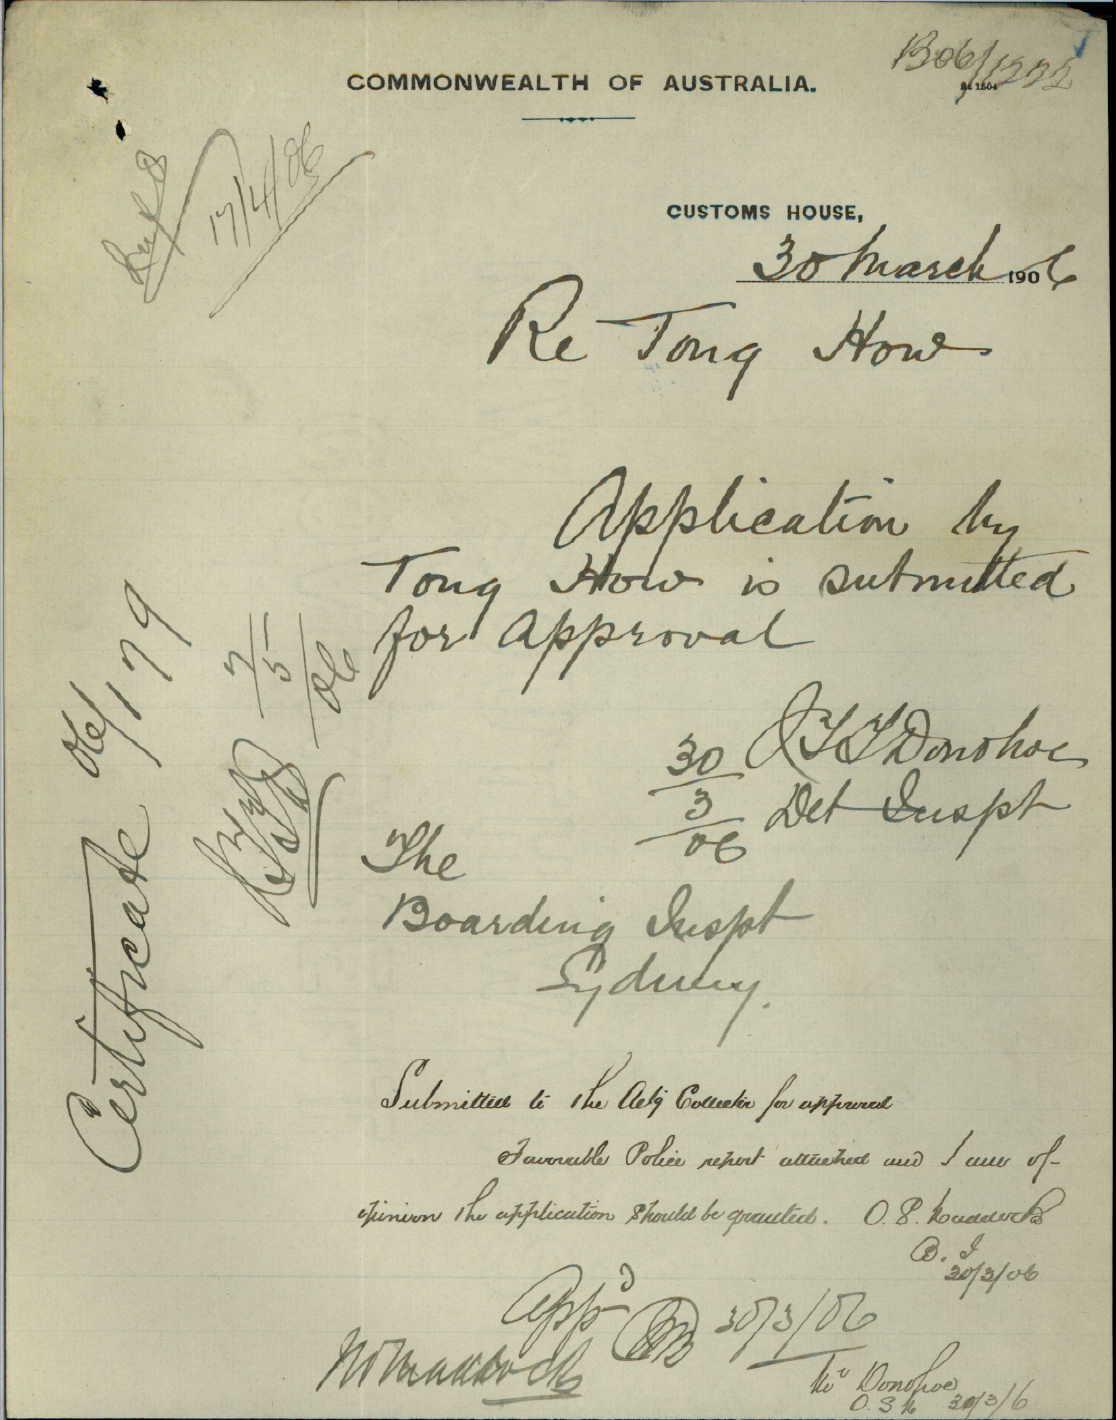 B06/1222
COMMONWEALTH OF AUSTRALIA.
17/4/06
CUSTOMS HOUSE,
30 March 1906
Re Tong How
Application by
Tong How is submitted
for approval
J T T Donohoe
Det Inspt
30/3/06
The
Boarding Inspt
Sydney.
Certificate 06/179
7/5/06
Submitted to the Actg Collector for approval
Favourable Police report attached and I am of
opinion the application should be granted. O. S. Maddocks
B. I
30/3/06
Appd
30/3/06
Mr Maddocks
Mr Donohoe
O.S.M 30/3/6